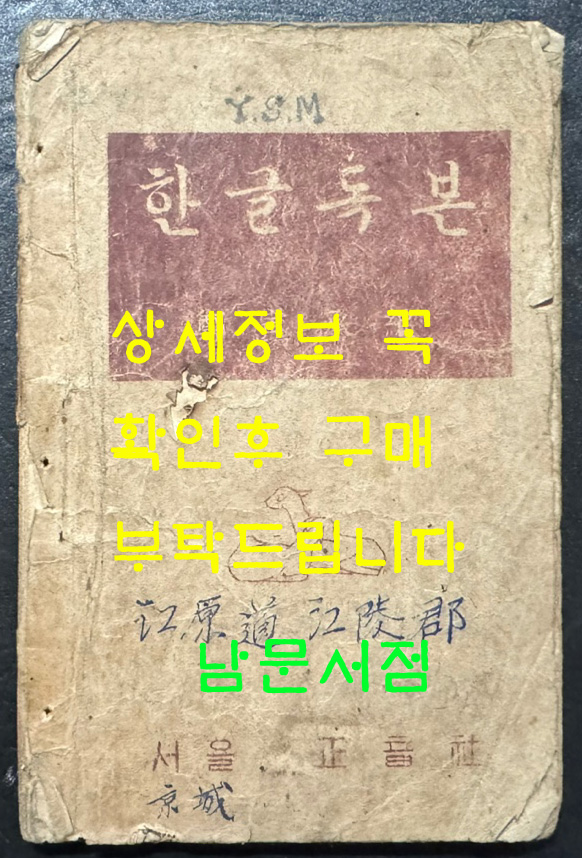 Y.S.M
한글독본
상세정보 꼭
확인후 구매
부탁드립니다
江原道 江陵郡
남문서점
서울 正音社
京城